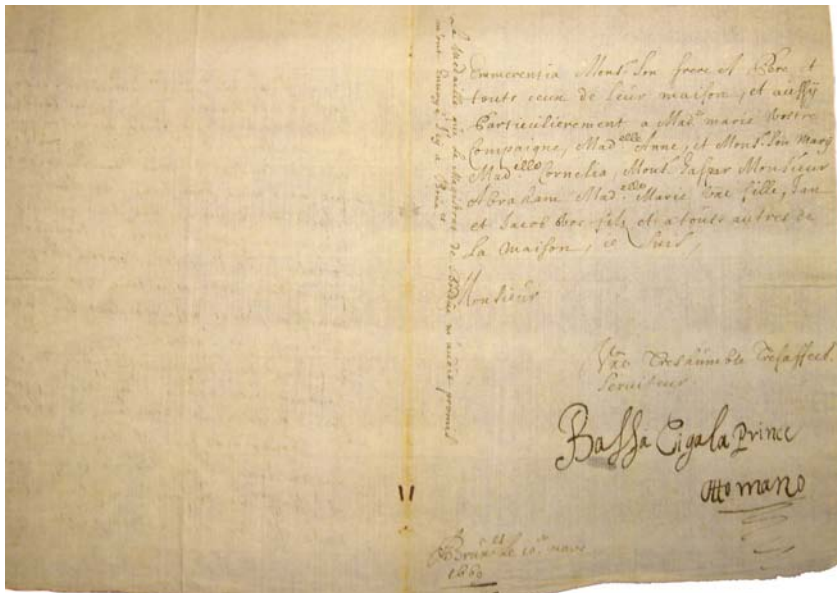 Emmerentia Mons.r Son frere et Pere et
touts ceux de leur maison, et aussÿ
Particulierement a Mad.e marie Vostre
Compaigne, Mad.elle Anne, et Mons.r Son Marÿ
Mad.elle Cornelia, Mons.r Gaspar Monsieur
Abraham Mad.elle Marie Vae fille, Jan
et Jacob Vos fils et a touts autres de
La maison, Je Suis,
Monsieur
Vre Treshumble Tresaffect.
Serviteur
Bassa Cigala Prince
Ottomano
Brux.lles Le 10.e
La Medaille que Le Magistras de m'avoit promis